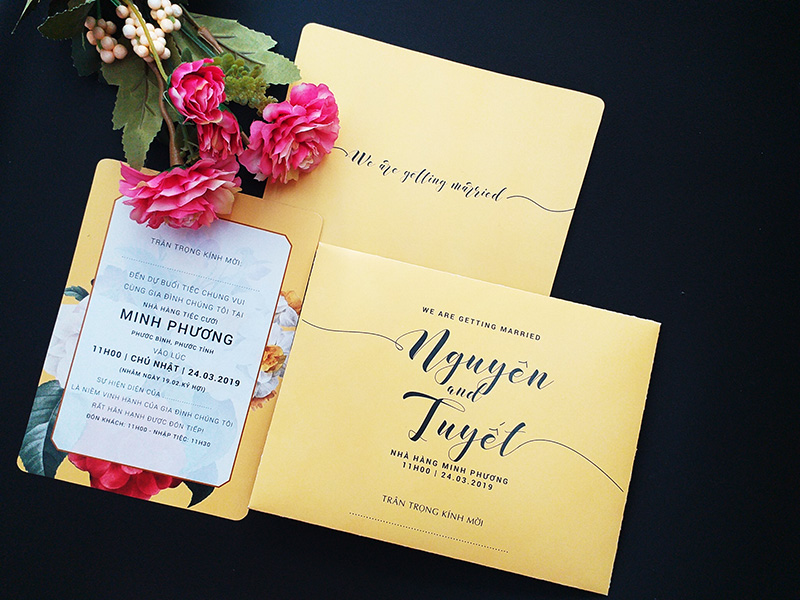 We are getting married
TRÂN TRỌNG KÍNH MỜI
ĐẾN DỰ BUỔI TIỆC CHUNG VUI
CÙNG GIA ĐÌNH CHÚNG TÔI TẠI
NHÀ HÀNG TIỆC CƯỚI
MINH PHƯƠNG
PHƯỚC BÌNH, PHƯỚC TỈNH
VÀO LÚC
11H00 | CHỦ NHẬT | 24.03.2019
(NHẰM NGÀY 19.02.KỶ HỢI)
SỰ HIỆN DIỆN CỦA
LÀ NIỀM VINH HẠNH CỦA GIA ĐÌNH CHÚNG TÔI
RẤT HÂN HẠNH ĐƯỢC ĐÓN TIẾP!
ĐÓN KHÁCH: 11H00 - NHẬP TIỆC: 11H30
WE ARE GETTING MARRIED
Nguyên
and
Tuyết
NHÀ HÀNG MINH PHƯƠNG
11H00 | 24.03.2019
TRÂN TRỌNG KÍNH MỜI